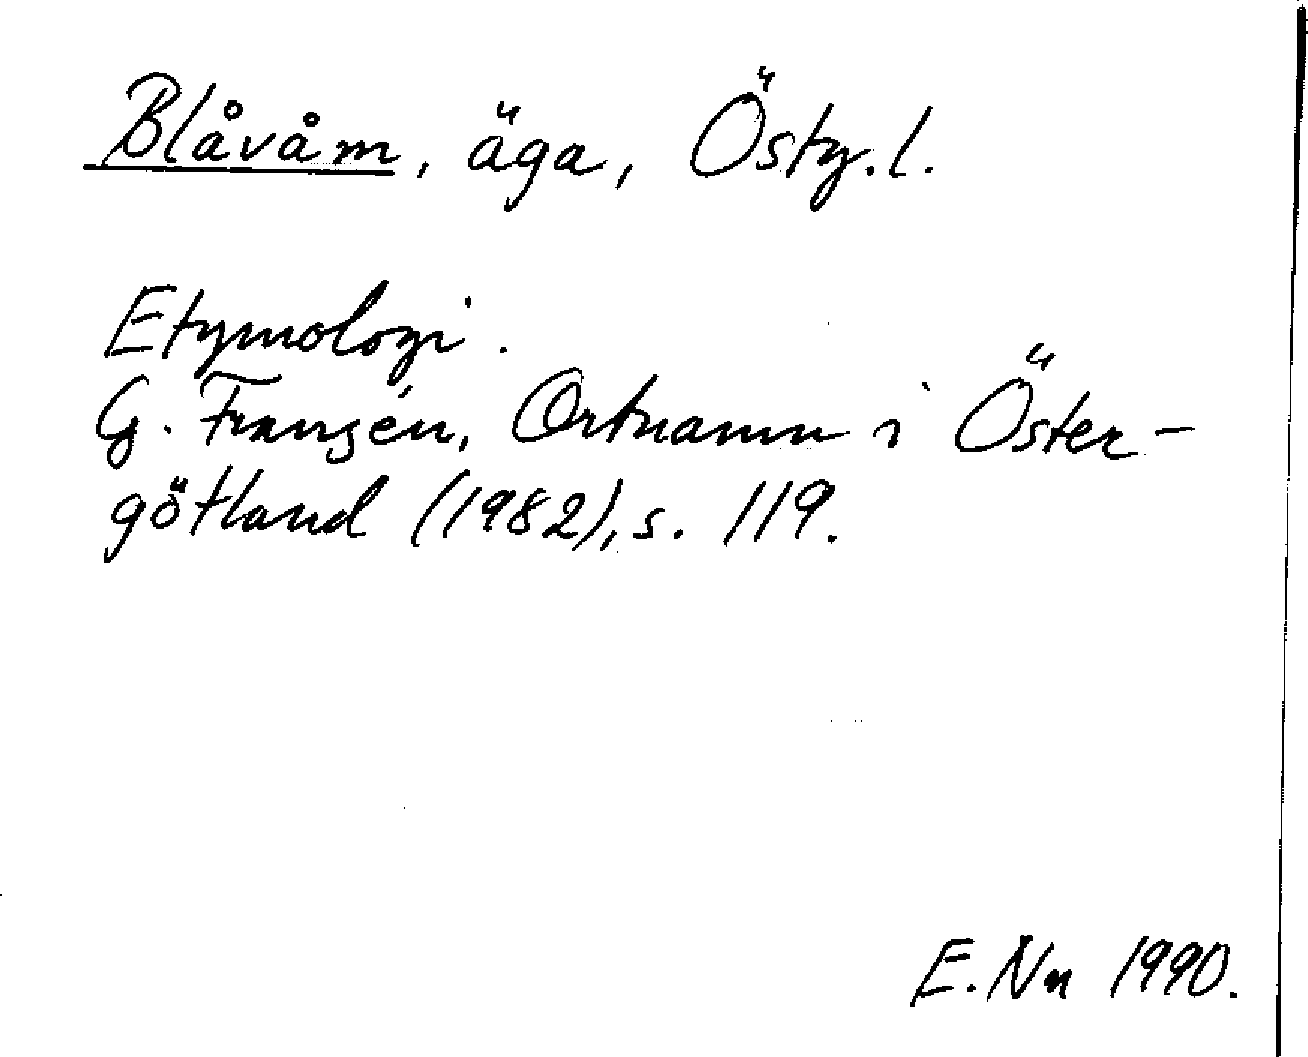 Blåvåm, äga, Östg. l.
Etymologi.
G. Franzén, Ortnamn i Öster-
götland (1982), s. 119.
E. Nn 1990.